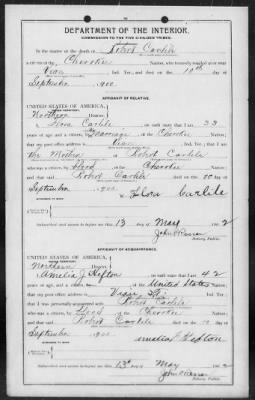 DEPARTMENT OF THE INTERIOR.
COMMISSION TO THE FIVE CIVILIZED TRIBES.
In the matter of the death of Robert Carlile
a citizen of the Cherokee Nation, who formerly resided at or near
Vian, Ind. Ter., and died on the 10th day of
September, 1900
AFFIDAVIT OF RELATIVE.
UNITED STATES OF AMERICA,
Northern District.
I, Flora Carlile, on oath state that I am 33
years of age and a citizen, by Marriage, of the Cherokee Nation;
that my post office address is Vian, Ind. Ter.; that I am
the Mother of Robert Carlile
who was a citizen, by blood, of the Cherokee Nation;
and that said Robert Carlile died on the 10 day of
September, 1900
Flora Carlile
Subscribed and sworn to before me this 13 day of May 1902
Notary Public.
AFFIDAVIT OF ACQUAINTANCE.
UNITED STATES OF AMERICA,
Northern District.
I, Amelia J Hefton, on oath state that I am 42
years of age, and a citizen of the United States
that my post office address is Vian, Ind. Ter.;
that I was personally acquainted with Robert Carlile
who was a citizen, by blood, of the Cherokee Nation;
and that said Robert Carlile died on the 10 day of
September, 1900
Amelia J Hefton
Subscribed and sworn to before me this 13th day of May 1902
Notary Public.